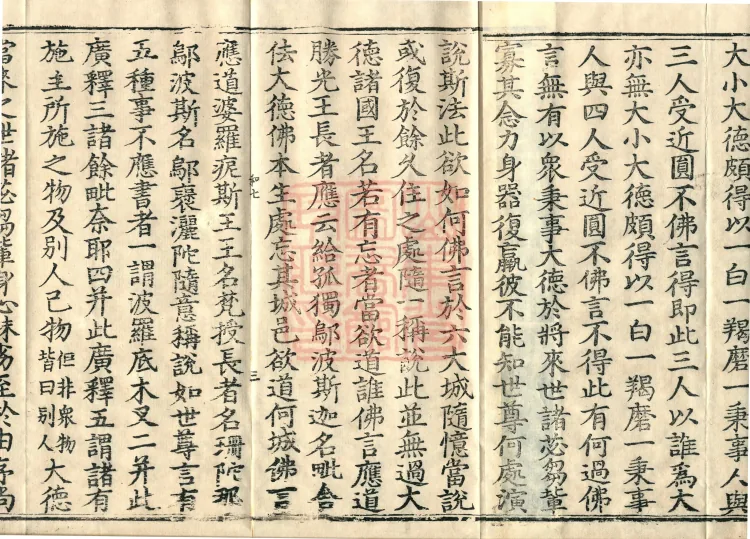 大小大德頗得以一白一羯磨一秉事人與
三人受近圓不佛言得即此三人以誰為大
亦無大小大德頗得以一白一羯磨一秉事
人與四人受近圓不佛言不得此有何過佛
言無有以眾秉事大德於將來世諸苾芻輩
寡其念力身器復羸彼不能知世尊何處演
說斯法此欲如何佛言於六大城隨憶當說
或復於餘久住之處隨一稱說此並無過大
德諸國王名若有忘者當欲道誰佛言應道
勝光王長者應云給孤獨鄔波斯迦名毗舍
佉大德佛本生處忘其城邑欲道何城佛言
三
應道婆羅痆斯王王名梵授長者名珊陀那
鄔波斯名鄔褒灑陀隨意稱說如世尊言有
五種事不應書者一謂波羅底木叉二并此
廣釋三諸餘毗奈耶四并此廣釋五謂諸有
施主所施之物及別人己物但非眾物皆曰別人大德
之世諸苾芻輩身心昧劣至於由序